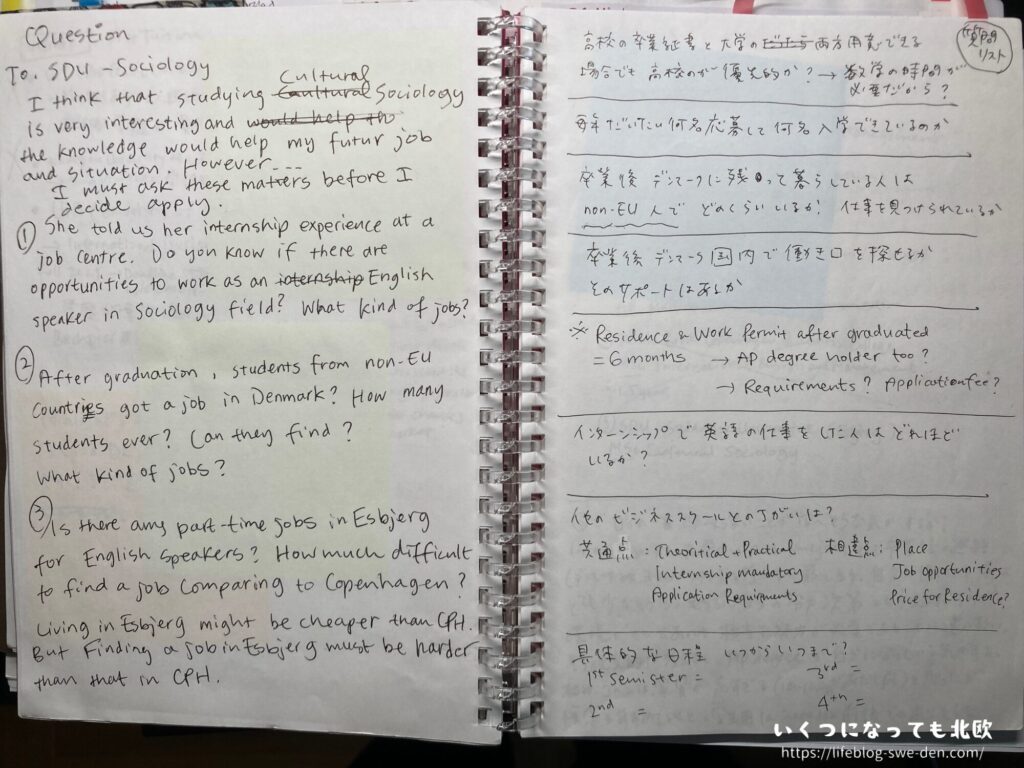 Question
To. SDU - Sociology
Cultural
I think that studying Cautural Sociology
is very interesting and would help th
the knowledge would help my futur job
and situation. However...
I must ask these matters before I
decide apply.
① She told us her internship experience at a
job centre. Do you know if there are
opportunities to work as an internship English
speaker in Sociology field? What kind of jobs?
② After graduation, students from non-EU
countries got a job in Denmark? How many
students ever? Can they find?
What kind of jobs?
③ Is there any part-time jobs in Esbjerg
for English speakers? How much difficult
to find a job comparing to Copenhagen?
Living in Esbjerg might be cheaper than CPH.
But Finding a job in Esbjerg must be harder
than that in CPH.
質問
リスト
高校の卒業証書と大学の 両方用意できる
場合でも高校のが優先的か？→数学の時間が
必要だから？
毎年だいたい何名応募して何名入学できているのか
卒業後デンマークに残って暮らしている人は
non-EU人でどのくらいいるか？仕事を見つけられているか
卒業後デンマーク国内で働き口を探せるか
そのサポートはあるか
※ Residence & Work Permit after graduated
= 6 months → AP degree holder too?
→ Requirements? Application fee?
インターンシップで英語の仕事をした人はどれほど
いるか？
他のビジネススクールとのちがいは？
共通点：Theoritical + Practical 相違点：Place
Internship mandatory Job opportunities
Application Requirments Price for Residence?
具体的な日程 いつからいつまで？
1st Semister = 3rd =
2nd = 4th =
いくつになっても北欧
https://lifeblog-swe-den.com/